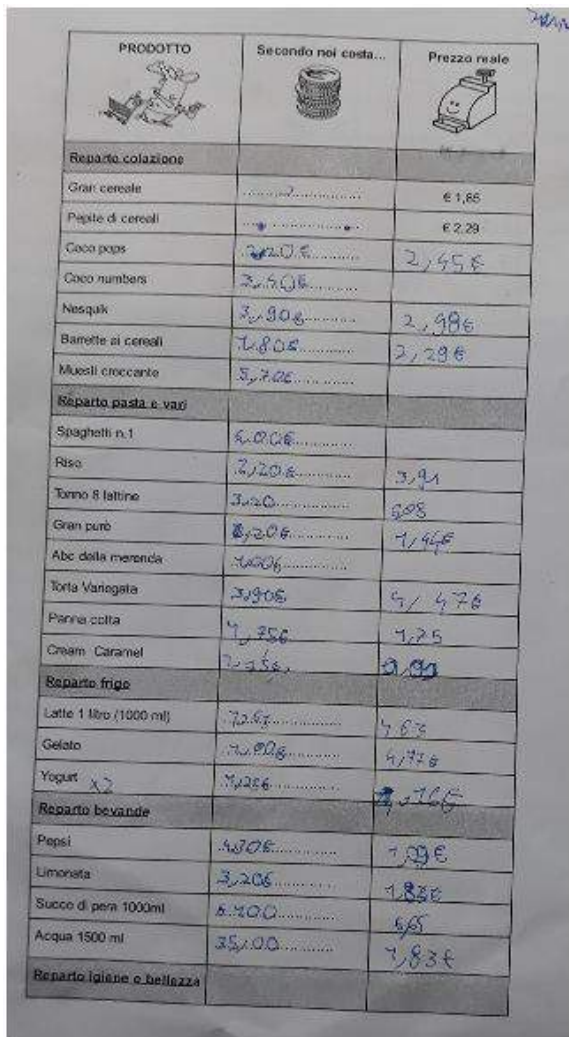 PRODOTTO Secondo noi costa... Prezzo reale
Reparto colazione
Gran cereale € 1,65
Pepite di cereali € 2,29
Coco pops 2,20 € 2,45€
Coco numbers 3,40€
Nesquik 3,90€ 2,98€
Barrette ai cereali 1,80€ 2,29€
Muesli croccante 5,70€
Reparto pasta e vari
Spaghetti n.1
Riso 2,20€ 3,91
Tonno 8 lattine 3,20
Gran purè 1,44€
Abc della merenda 1,00€
Torta Variegata 3,90€ 4,47€
Panna cotta 1,75€ 1,25
Cream Caramel
Reparto frigo
Latte 1 litro (1000 ml)
Gelato 4,77€
Yogurt x2 1,25€
Reparto bevande
Pepsi 1,09€
Limonata 3,20€ 1,83€
Succo di pera 1000ml
Acqua 1500 ml 35,00 1,83€
Reparto igiene e bellezza